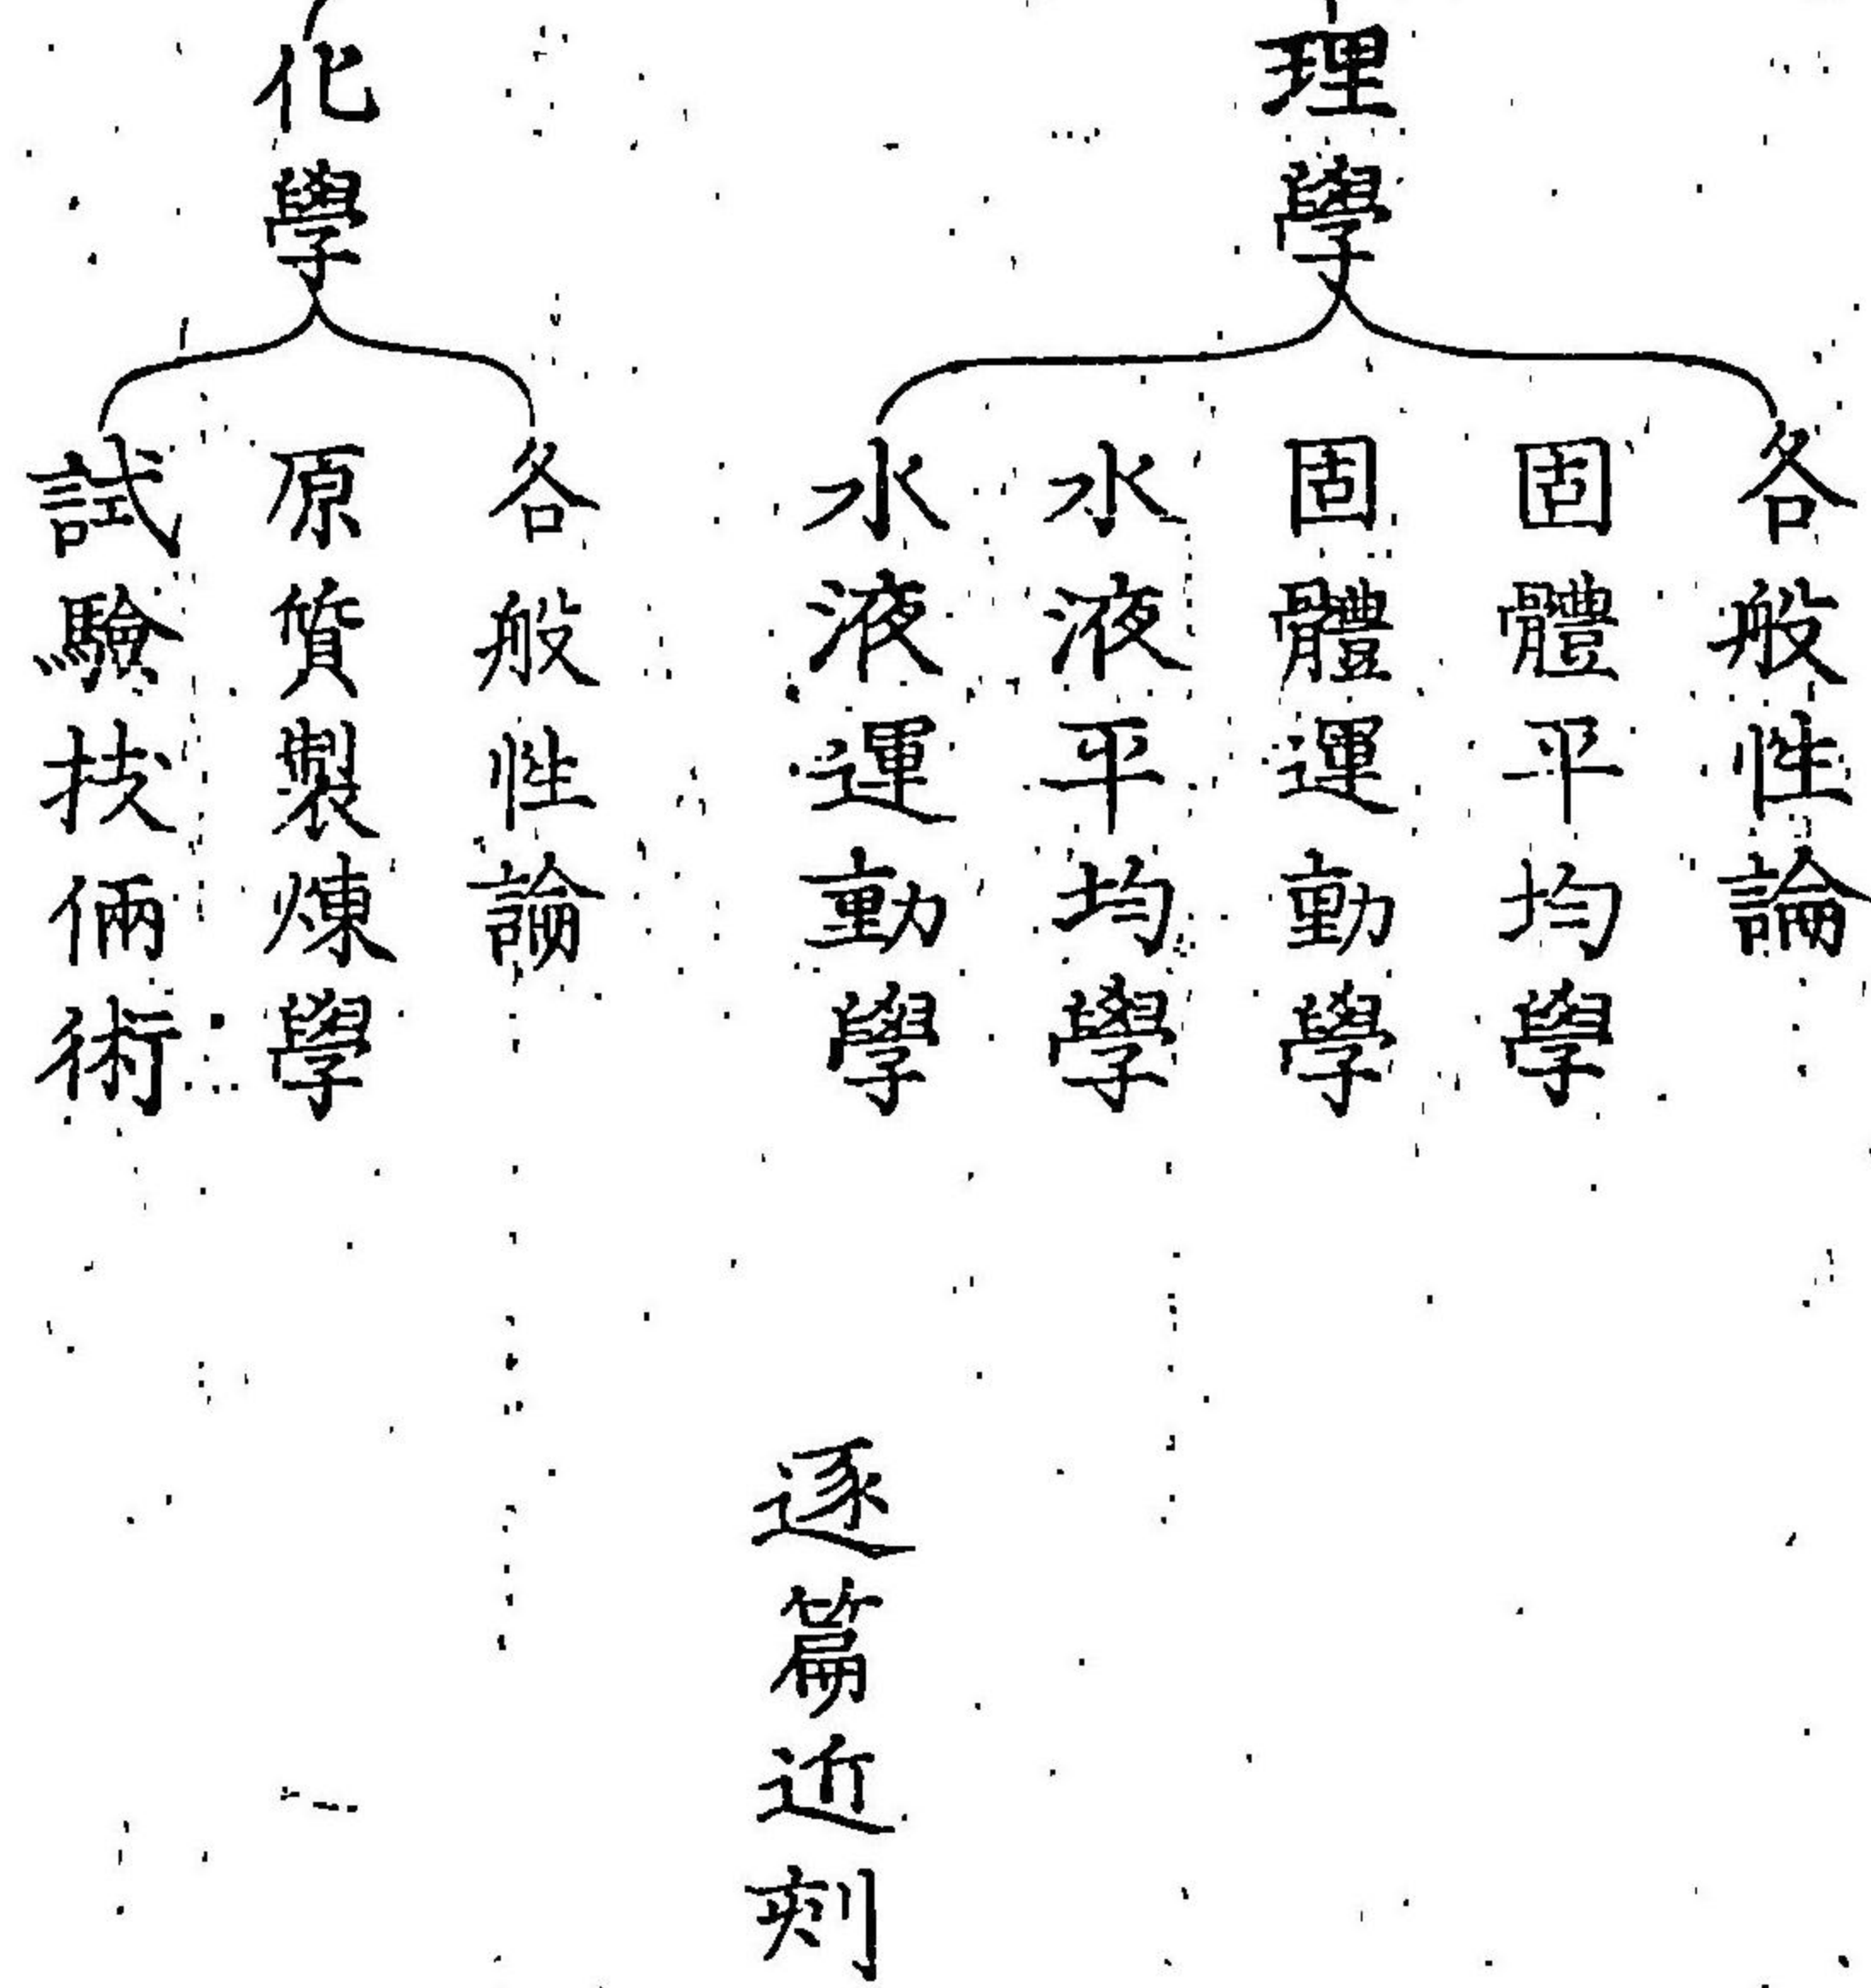 理學
各般性論
固體平均學
固體運動學
水液平均學
水液運動學
化學
各般性論
原質製煉學
試驗技倆術
逐篇近刻